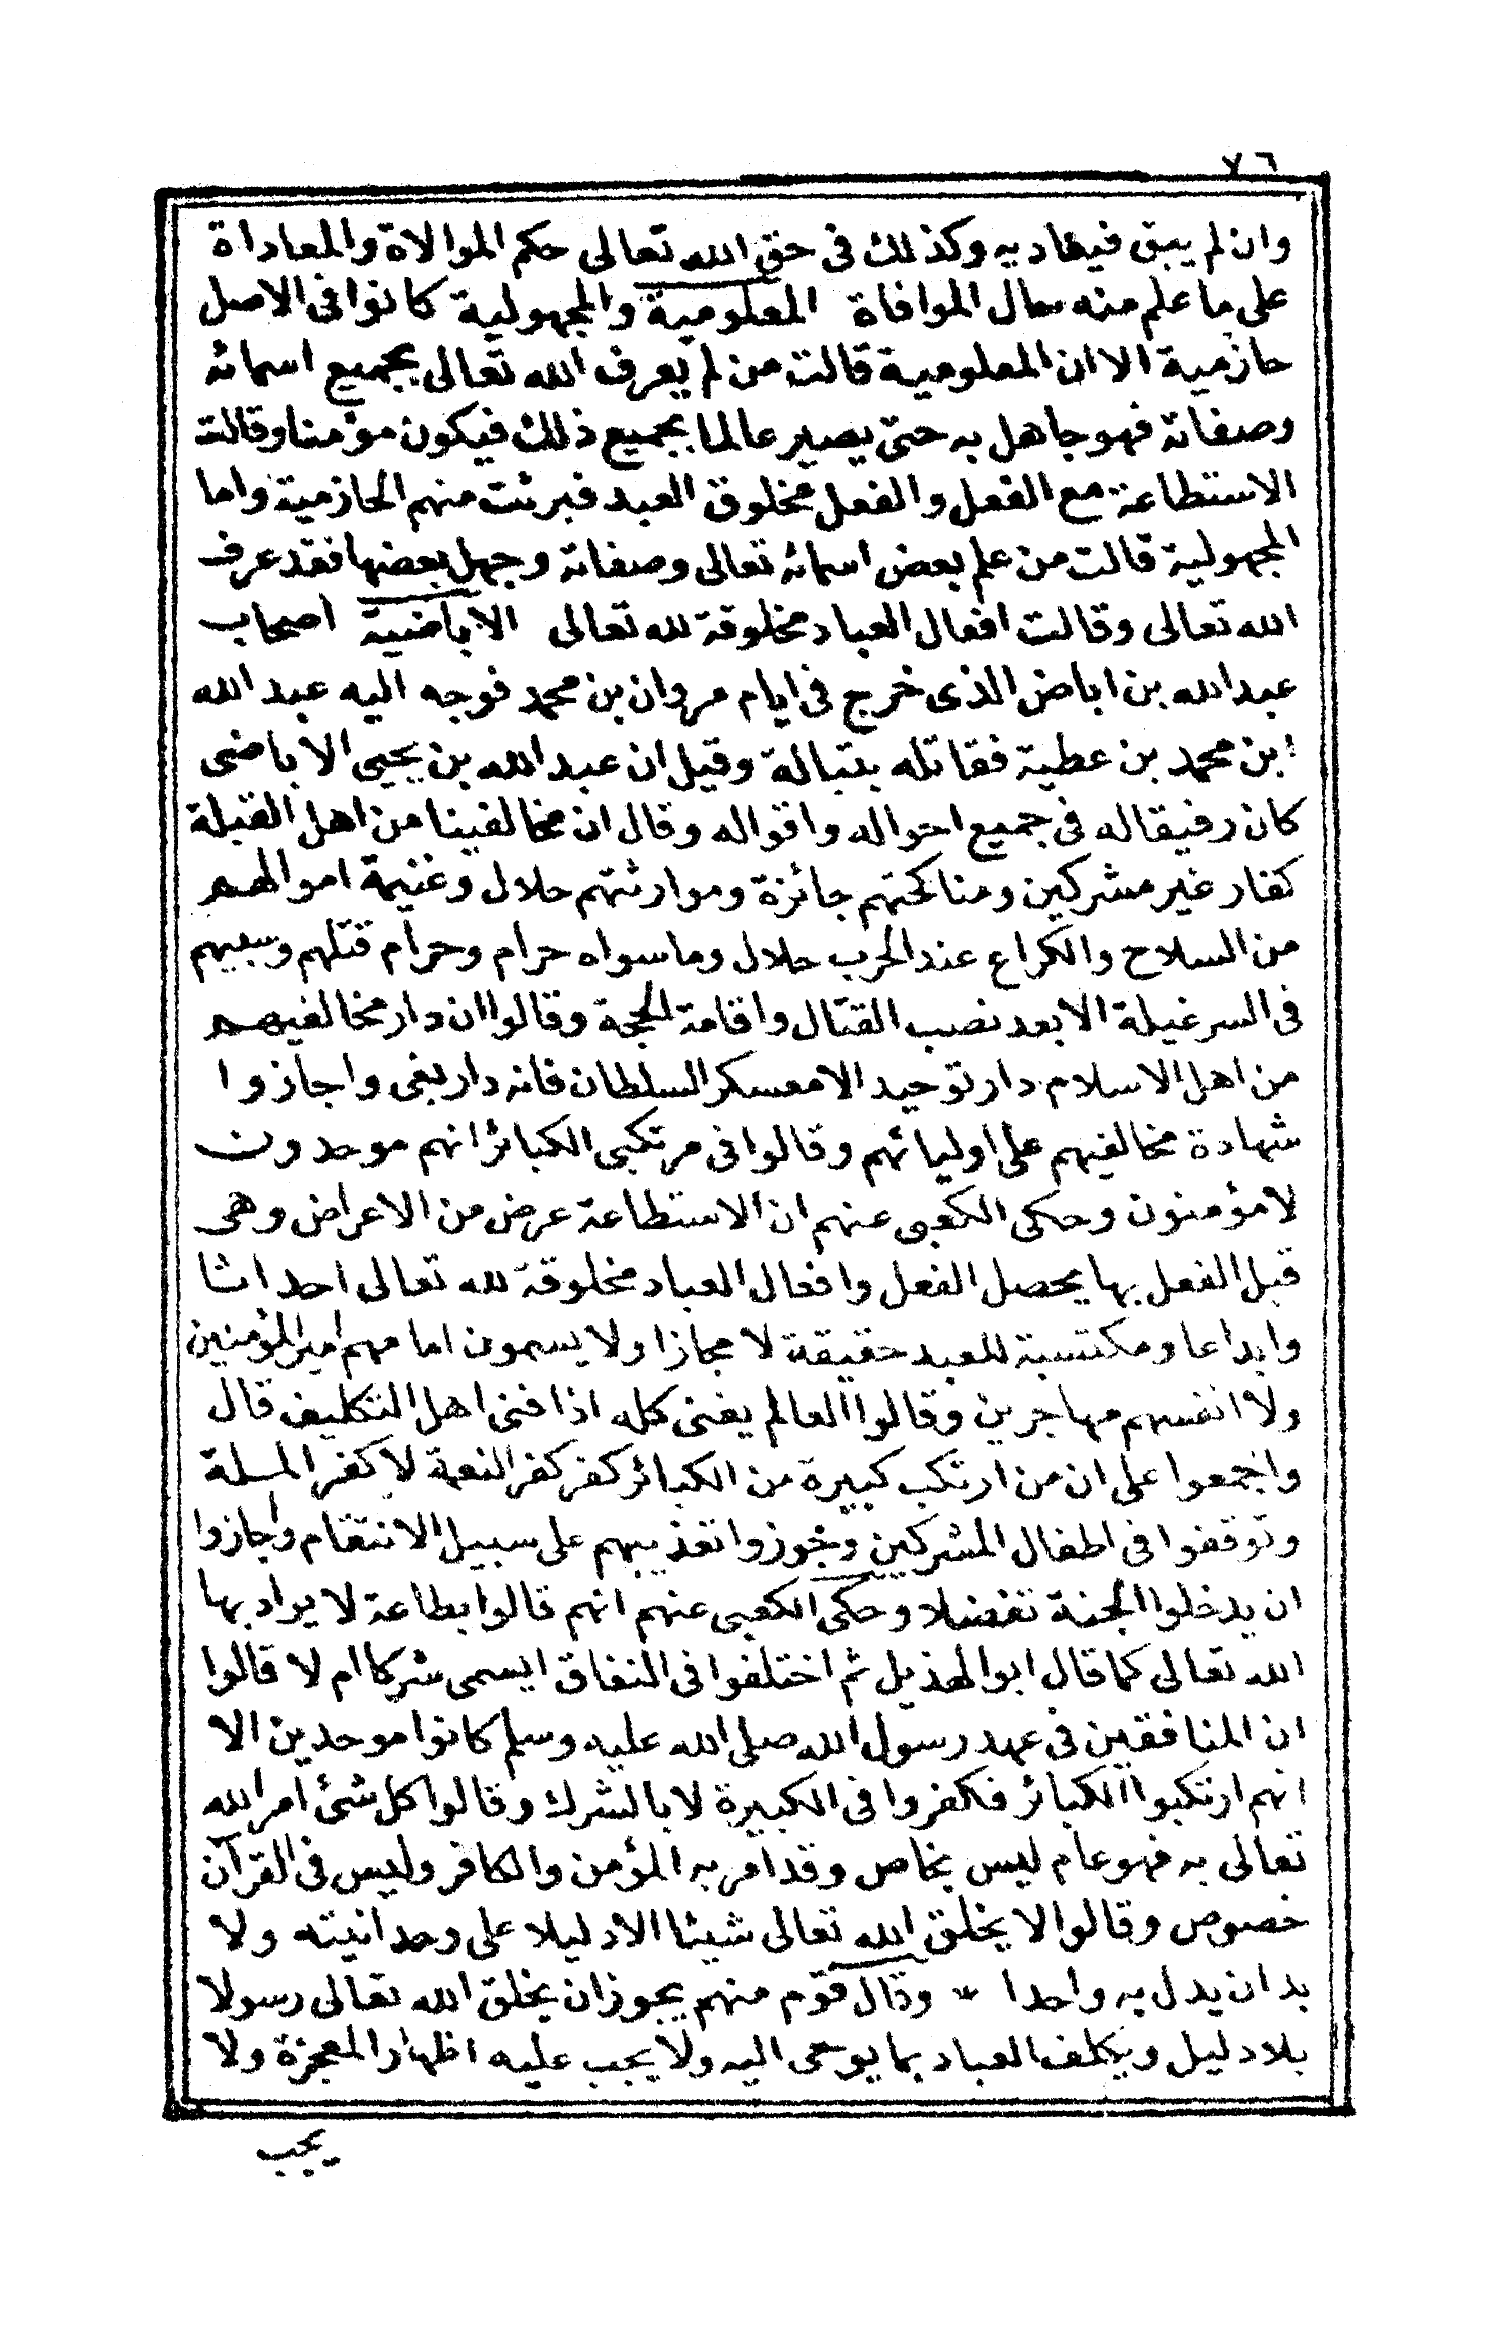 ٧٦
وان لم يبق فيعاديه وكذلك فى حق الله تعالى حكم الموالاة والمعاداة
على ما علم منه حال الموافاة المعلومية والمجهولية كانوا فى الاصل
حازمية الا ان المعلومية قالت من لم يعرف الله تعالى بجميع اسمائه
وصفاته فهو جاهل به حتى يصير عالما بجميع ذلك فيكون مؤمنا وقالت
الاستطاعة مع الفعل والفعل مخلوق العبد فبرئت منهم الحازمية واما
المجهولية قالت من علم بعض اسمائه تعالى وصفاته وجهل بعضها فقد عرف
الله تعالى وقالت افعال العباد مخلوقة لله تعالى الاباضية اصحاب
عبد الله بن اباض الذى خرج فى ايام مروان بن محمد فوجه اليه عبد الله
ابن محمد بن عطية فقاتله بتبالة وقيل ان عبد الله بن يحيى الاباضى
كان رفيقا له فى جميع احواله واقواله وقال ان مخالفينا من اهل القبلة
كفار غير مشركين ومناكحتهم جائزة وموارثتهم حلال وغنيمة اموالهم
من السلاح والكراع عند الحرب حلال وما سواه حرام وحرام قتلهم وسبيهم
فى السر غيلة الا بعد نصب القتال واقامة الحجة وقالوا ان دار مخالفيهم
من اهل الاسلام دار توحيد الا معسكر السلطان فانه دار بغى واجازوا
شهادة مخالفيهم على اوليائهم وقالوا فى مرتكبى الكبائر انهم موحدون
لا مؤمنون وحكى الكعبى عنهم ان الاستطاعة عرض من الاعراض وهى
قبل الفعل بها يحصل الفعل وافعال العباد مخلوقة لله تعالى احداثا
وابداعا ومكتسبة للعبد حقيقة لا مجازا ولا يسمون امامهم امير المؤمنين
ولا انفسهم مهاجرين وقالوا العالم يفنى كله اذا فنى اهل التكليف قال
واجمعوا على ان من ارتكب كبيرة من الكبائر كفر كفر النعمة لا كفر الملة
وتوقفوا فى اطفال المشركين وجوزوا تعذيبهم على سبيل الانتقام واجازوا
ان يدخلوا الجنة تفضلا وحكى الكعبى عنهم انهم قالوا بطاعة لا يراد بها
الله تعالى كما قال ابو الهذيل ثم اختلفوا فى النفاق ايسمى شركا ام لا قالوا
ان المنافقين فى عهد رسول الله صلى الله عليه وسلم كانوا موحدين الا
انهم ارتكبوا الكبائر فكفروا فى الكبيرة لا بالشرك وقالوا كل شئ امر الله
تعالى به فهو عام ليس بخاص وقد امر به المؤمن والكافر وليس فى القرآن
خصوص وقالوا لا يخلق الله تعالى شيئا الا دليلا على وحدانيته ولا
بد ان يدل به واحدا * وقال قوم منهم يجوز ان يخلق الله تعالى رسولا
بلا دليل ويكلف العباد بما يوحى اليه ولا يجب عليه اظهار المعجزة ولا
يجب